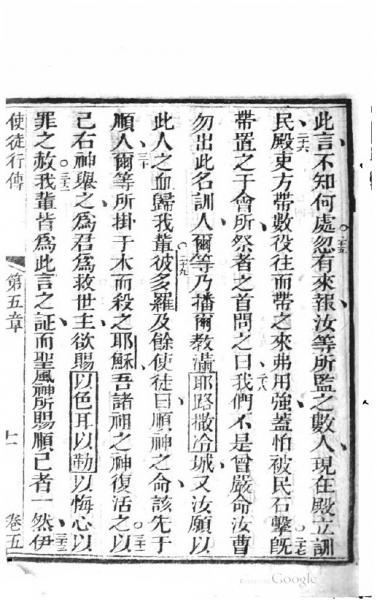 此言不知何處忽有來報汝等所監之數人現在殿立訓
二十五
民殿吏方帶數役往而帶之來弗用強蓋怕被民石擊旣
二十六
二十七
帶置之于會所祭者之首問之曰我們不是曾嚴命汝曹
二十八
勿出此名訓人爾等乃播爾教滿耶路撒冷城又汝願以
此人之血歸我輩彼多羅及餘使徒曰順神之命該先于
二十九
順人爾等所掛于木而殺之耶穌吾諸祖之神復活之以
三十
三十一
己右神舉之爲君爲救世主欲賜以色耳以勒以悔心以
罪之赦我輩皆爲此言之証而聖風神所賜順己者一然伊
三十二
三十三
使徒行傳 第五章 十一 卷五
Google